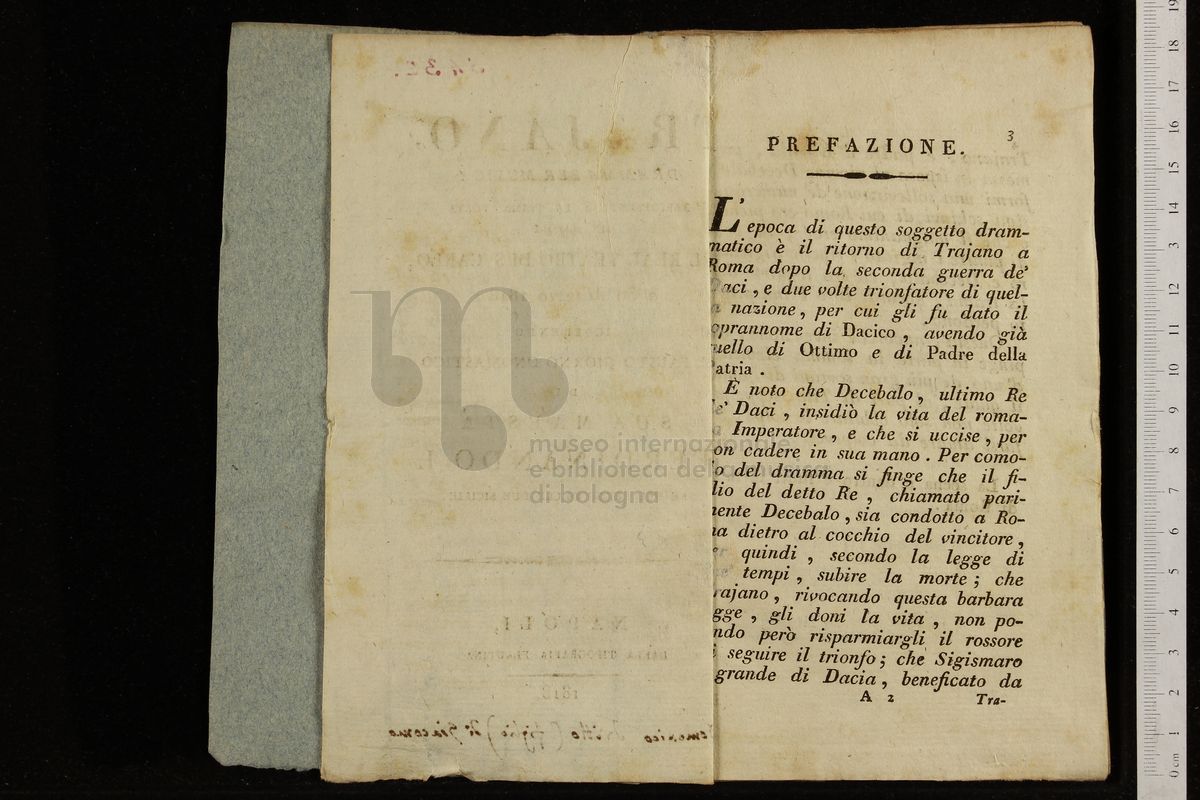 3
PREFAZIONE.
L' epoca di questo soggetto dram-
matico è il ritorno di Trajano a
Roma dopo la seconda guerra de'
Daci, e due volte trionfatore di quel-
a nazione, per cui gli fu dato il
oprannome di Dacico, avendo già
uello di Ottimo e di Padre della
atria.
È noto che Decebalo, ultimo Re
e' Daci, insidiò la vita del roma-
Imperatore, e che si uccise, per
on cadere in sua mano. Per como-
o del dramma si finge che il fi-
lio del detto Re, chiamato pari-
ente Decebalo, sia condotto a Ro-
a dietro al cocchio del vincitore,
quindi, secondo la legge di
tempi, subire la morte; che
rajano, rivocando questa barbara
gge, gli doni la vita, non po-
ndo però risparmiargli il rossore
seguire il trionfo; che Sigismaro
grande di Dacia, beneficato da
A 2
Tra-
TRAJANO.
NAPOLI,
DALLA TIPOGRAFIA FLAUTINA
1818
museo internazionale
e biblioteca della musica
di bologna